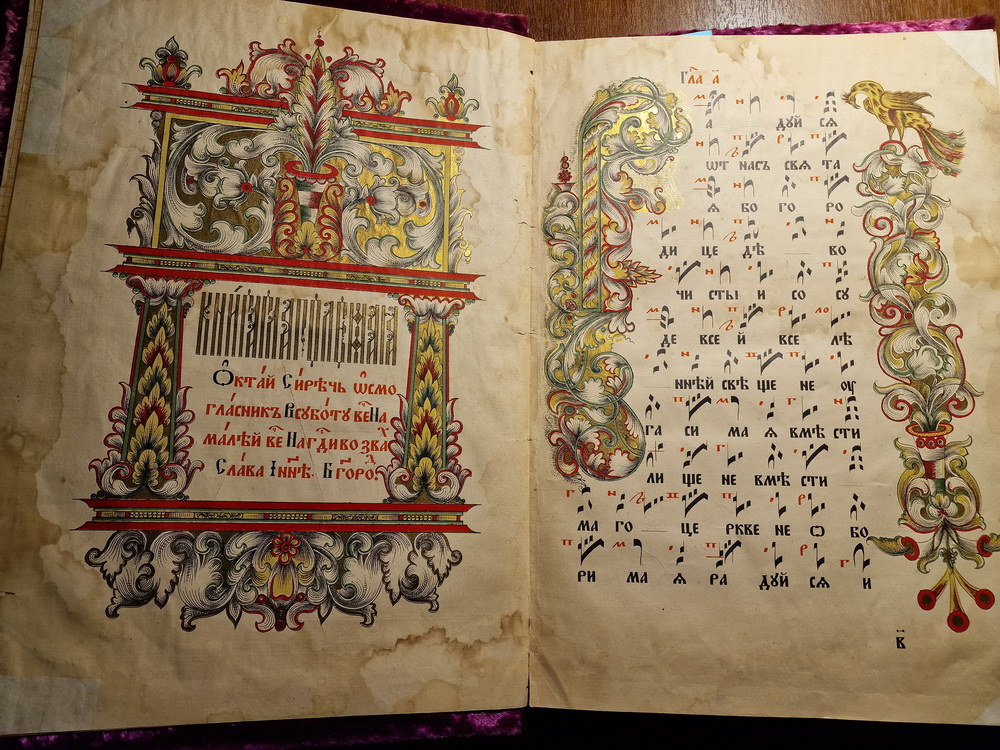 Ѻктай Сирѣчь ѡсмо
гласникъ Всуботу ве҃ На
малѣй ве҃ Нагд҃и возва
Слава Їнн҃ѣ. Бгоро҃:
Гла҃ а҃
а дуй сѧ
ѿт насъ свѧ та
ѧ бо го ро
ди це дѣ во
чи сты и со су
де все й все лѣ
ннѣй свѣ ще не ѹ
га си ма ѧ вмѣ сти
ли ще не вмѣ сти
ма го це ркве не ѻ бо
ри ма ѧ ра дуй сѧ и
в҃